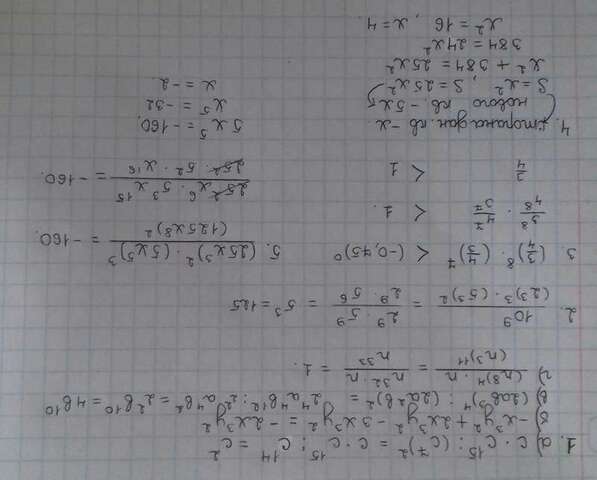 1. а) c · c¹⁵ : (c⁷)² = c · c¹⁵ : c¹⁴ = c²
б) -x³y² + 2x³y² - 3x³y² = -2x³y²
в) (2ab³)⁴ : (2a²b)² = 2⁴a⁴b¹² : 2²a⁴b² = 2²b¹⁰ = 4b¹⁰
г) (n⁸)⁴ · n / (n³)¹¹ = n³² · n / n³³ = 1.
2. 10⁹ / (2³)³ · (5³)² = 2⁹ · 5⁹ / 2⁹ · 5⁶ = 5³ = 125
3. (3/4)⁸ · (4/3)⁷ < (-0,75)⁰
3⁸/4⁸ · 4⁷/3⁷ < 1.
3/4 < 1
5. (25x³)² · (5x⁵)³ / (125x⁸)² = -160.
25² x⁶ · 5³ x¹⁵ / 25² · 5² · x¹⁶ = -160.
5x⁵ = -160.
x⁵ = -32
x = -2
4. сторона дан. кв - x
нового кв. - 5x
S = x², S = 25x²
x² + 384 = 25x²
384 = 24x²
x² = 16, x = 4.